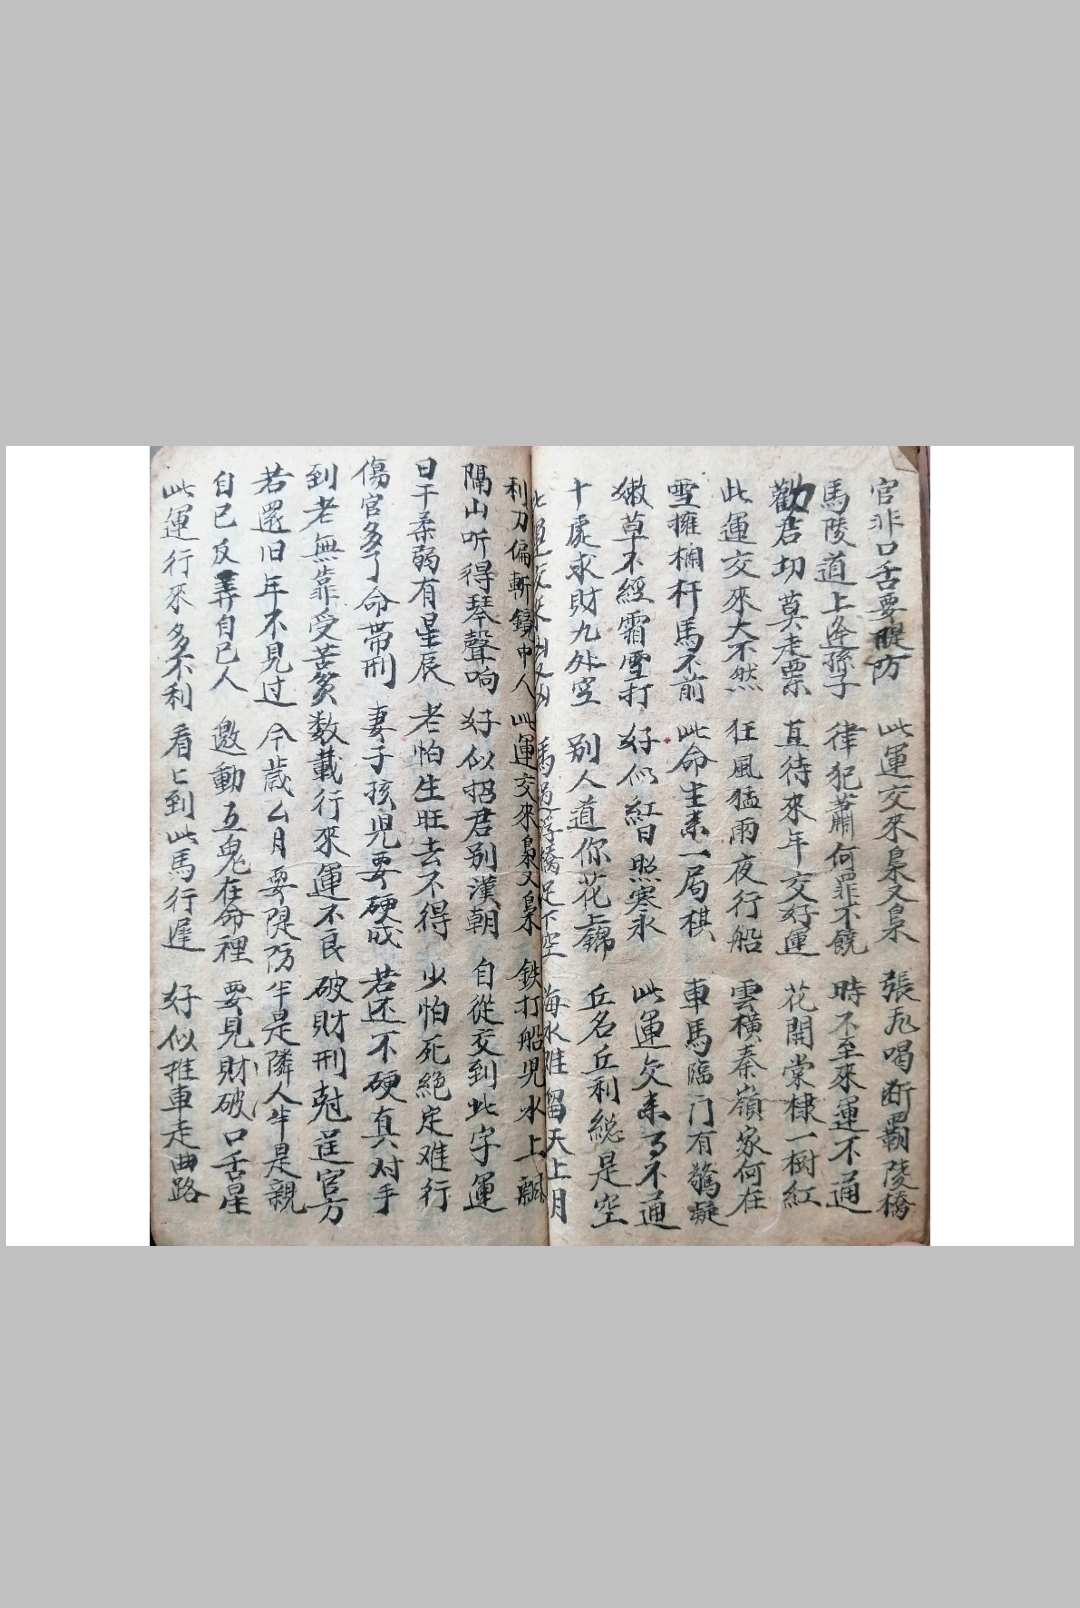 官非口舌要隄防 此運交來梟又梟 張飛喝断覇陵橋
馬陵道上逢孫子 律犯蕭何罪不饒 時不至來運不通
勸君切莫走票 直待來年交好運 花開棠棣一樹紅
此運交來大不然 狂風猛雨夜行船 雲横秦嶺家何在
雪擁欄杆馬不前 此命生來一局棋 車馬臨门有驚疑
嫩草不經霜雪打 好似紅日照寒氷 此運交來不通
十處求財九外空 別人道你花上錦 丘名丘利緫是空
此運交來 馬過浮橋足下空 海水难留天上月
利刀偏斬鏡中人 此運交來梟又梟 鉄打船児水上飄
隔山听得琴聲响 好似招君别漢朝 自從交到此字運
日干柔弱有星辰 老怕生旺去不得 少怕死絶定难行
傷官多了命帶刑 妻子孩児要硬成 若还不硬真对手
到老無靠受苦貧 数載行來運不良 破財刑尅逞官方
若還旧年不見过 今歳么月要隄防 半是隣人半是親
自己反弄自己人 邀動五鬼在命裡 要見財破口舌星
此運行來多不利 看上到此馬行遲 好似推車走曲路